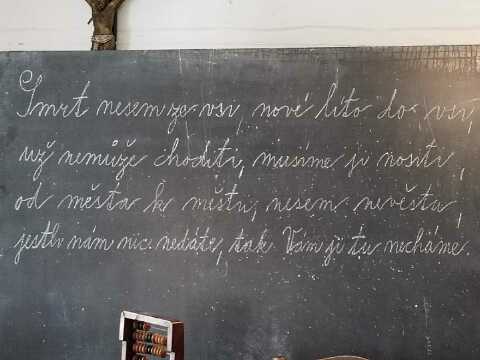 Smrt nesem ze vsi, nové líto do vsi,
už nemůže choditi, musíme ji nositi,
od města k městu, nesem nevěsta,
jestli nám nic nedáte, tak Vám ji tu necháme.